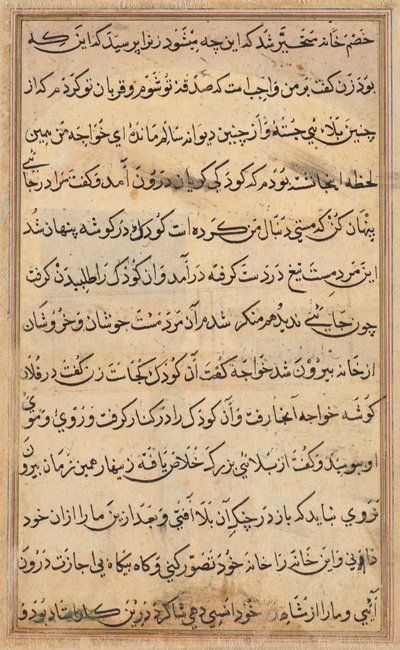 خصم خانه متحیر شد که این چه میشود زنرا پرسید که این که
بود زن کفت بر من واجب است که صدقه تو شوم و قربان تو کردم که از
چنین بلائی جسته و از چنین دیوانه سالم مانده ای خواجه من همین
لحظه اینجا نشسته بودم که کودکی کریان درون آمد و کفت مرا در جائی
پنهان کن که مستی دنبال من کرده است کودک در کوشه پنهان شد
این مرد مست تیغ در دست کرفته درآمد و آن کودک را طلبیدن کرفت
چون جائی ندید هم منکر شدم آن مرد مست جوشان و خروشان
از خانه بیرون شد خواجه کفت آن کودک کجاست زن کفت در فلان
کوشه خواجه آنجا رفت و آن کودک را در کنار کرفت و روی و موی
او بوسید و کفت از بلائی بزرک خلاص یافته زینهار همین زمان بیرون
نروی نباید که باز در چنک آن بلا افتی و بعد ازین ما را از آن خود
دانی و این خانه را خانه خود تصور کنی و کاه بیکاه بی اجازت درون
آئی و ما را از خود انسی دهی شاکرد درین کار استاد بود و